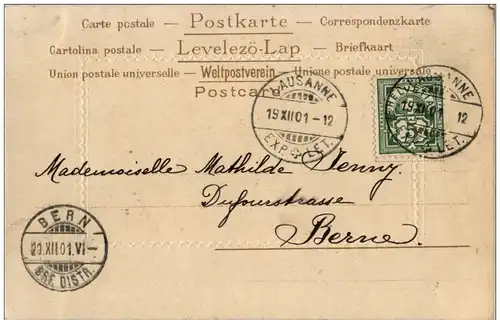 Carte postale – Postkarte – Correspondenzkarte
Cartolina postale – Levelezö-Lap – Briefkaart
Union postale universelle – Weltpostverein – Unione postale universale
Postcard
LAUSANNE
19 XII 01 – 12
EXP. LET.
LAUSANNE
19 XII 01 – 12
LET.
HELVETIA
5
Mademoiselle Mathilde Jenny.
Dufourstrasse
Berne.
BERN
20. XII. 01. VI –
BRF. DISTR.